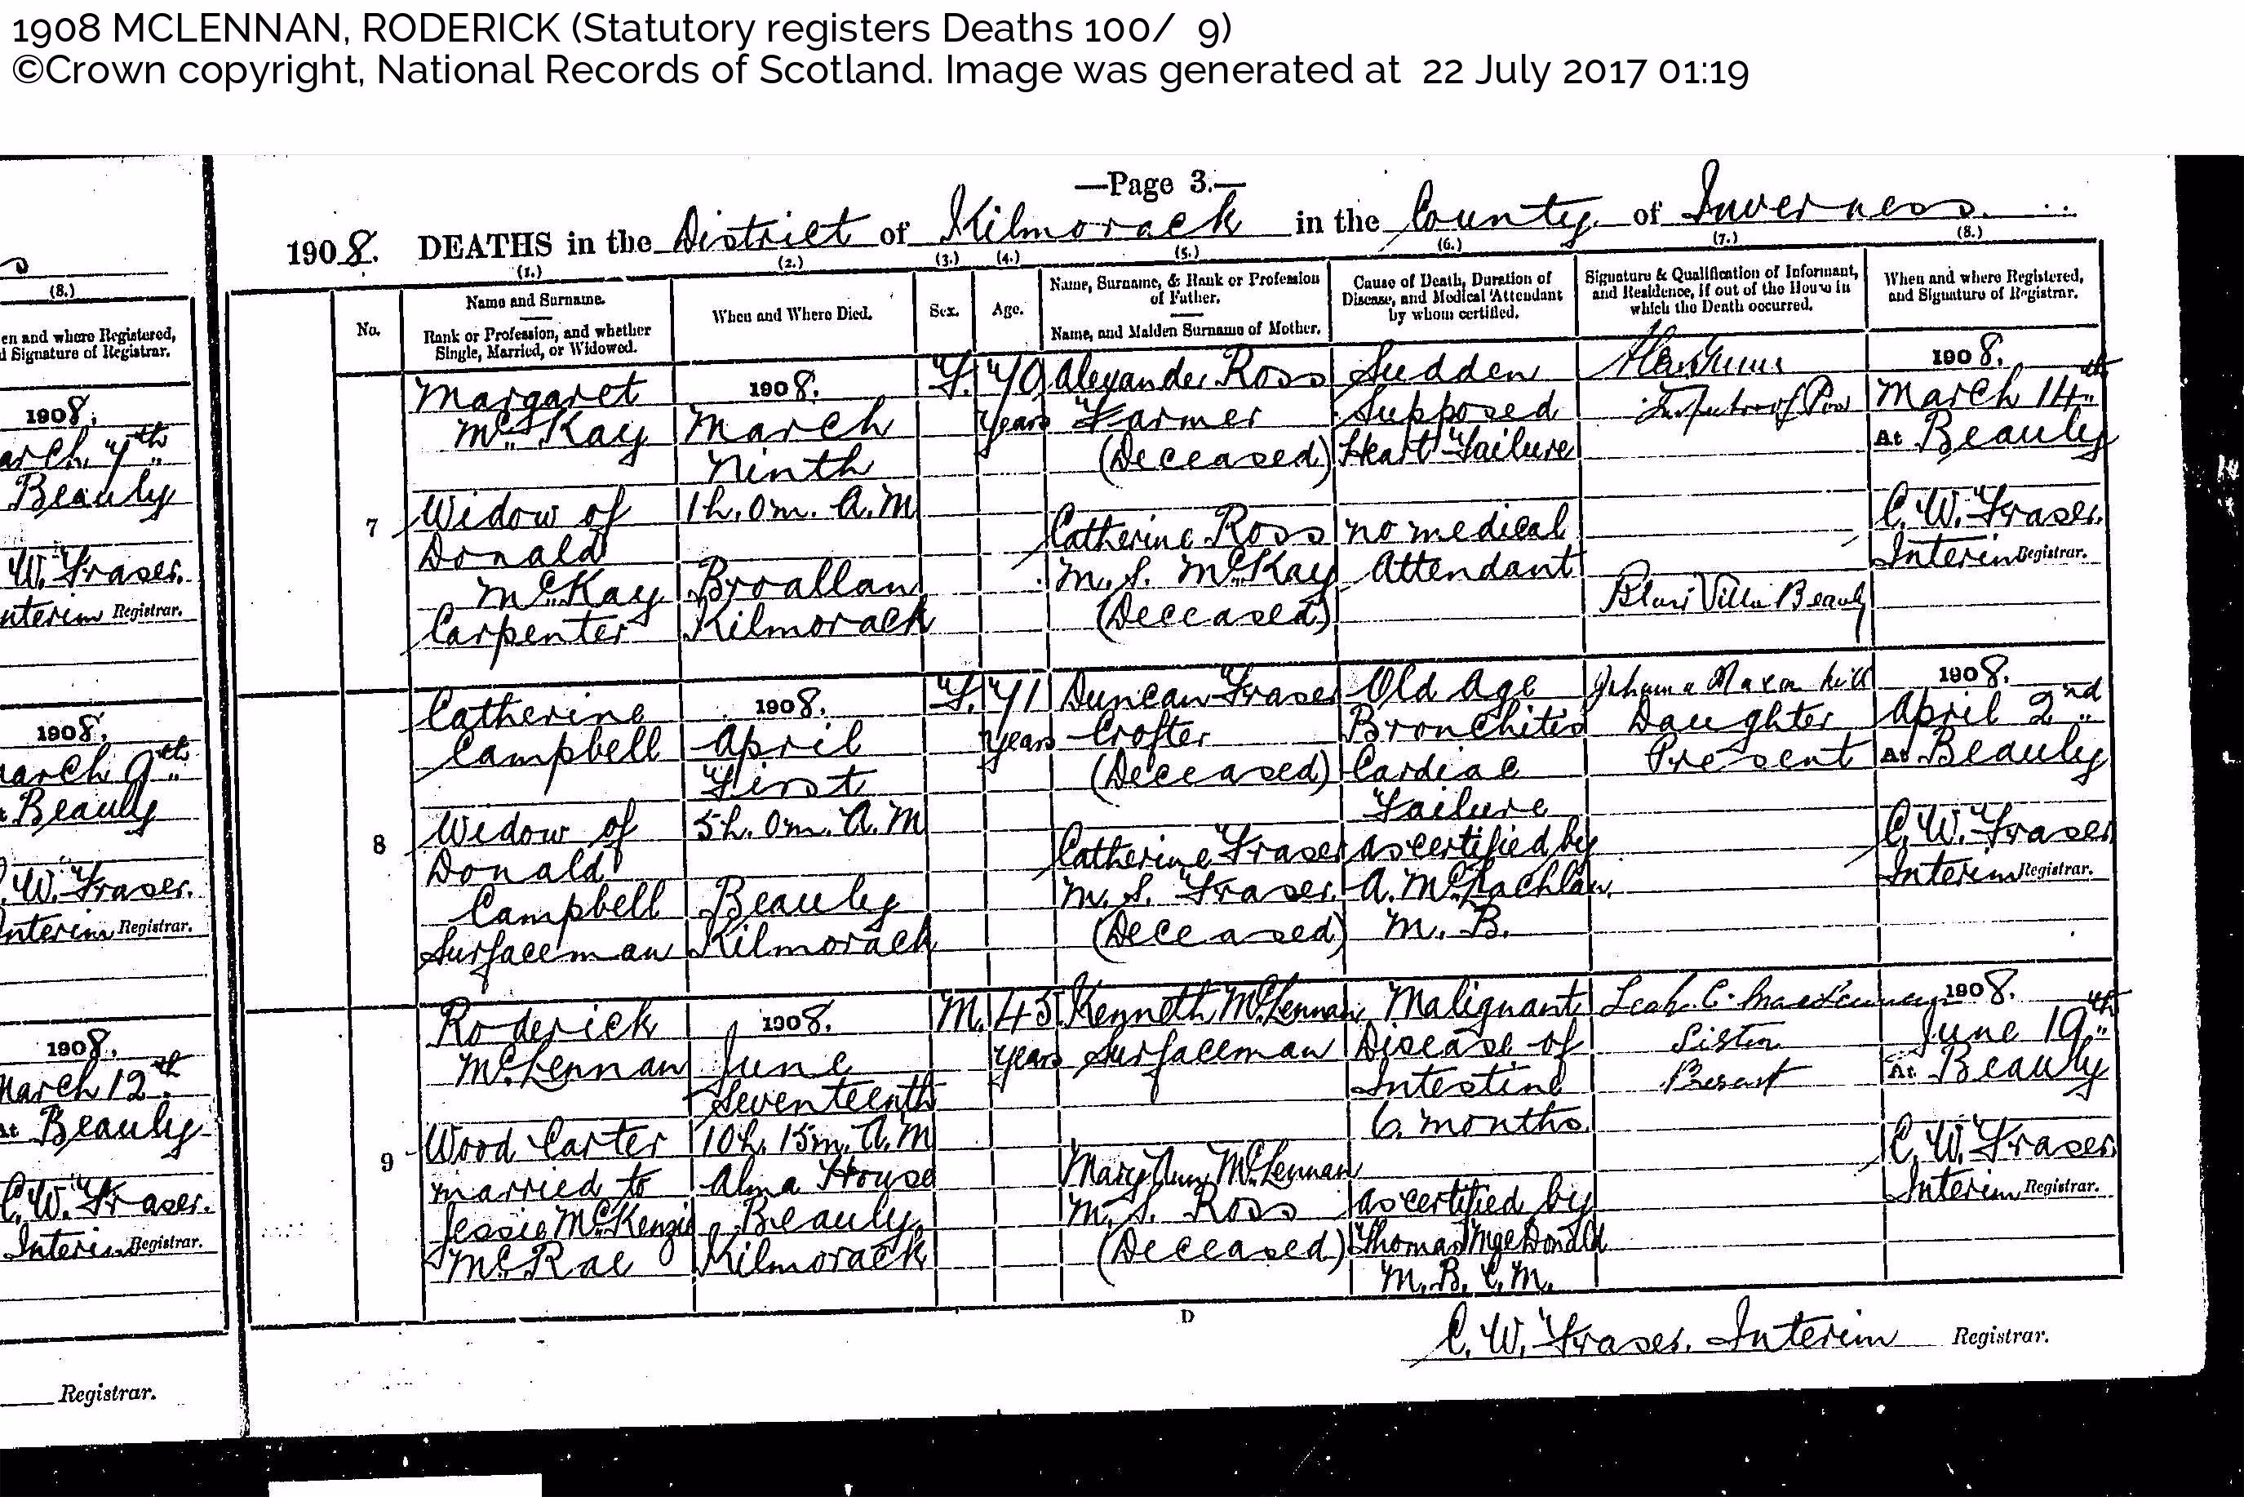 1908 MCLENNAN, RODERICK (Statutory registers Deaths 100/ 9)
©Crown copyright, National Records of Scotland. Image was generated at 22 July 2017 01:19
—Page 3.—
1908. DEATHS in the District of Kilmorack in the County of Inverness
(1.) (2.) (3.) (4.) (5.) (6.) (7.) (8.)
No.
Name and Surname.
Rank or Profession, and whether
Single, Married, or Widowed.
When and Where Died.
Sex.
Age.
Name, Surname, & Rank or Profession
of Father.
Name, and Maiden Surname of Mother.
Cause of Death, Duration of
Disease, and Medical Attendant
by whom certified.
Signature & Qualification of Informant,
and Residence, if out of the House in
which the Death occurred.
When and where Registered,
and Signature of Registrar.
7
Margaret
McKay
Widow of
Donald
McKay
Carpenter
1908.
March
Ninth
1h. 0m. A.M
Broallan
Kilmorack
F.
70
years
Alexander Ross
Farmer
(Deceased)
Catherine Ross
M.S. McKay
(Deceased)
Sudden
Supposed
Heart Failure
no medical
Attendant
Inspector of Poor
Villa Beauly
1908.
March 14th
At Beauly
C. W. Fraser.
Interim Registrar.
8
Catherine
Campbell
Widow of
Donald
Campbell
Surfaceman
1908.
April
First
5h. 0m. A.M
Beauly
Kilmorack
F.
71
years
Duncan Fraser
Crofter
(Deceased)
Catherine Fraser
M.S. Fraser.
(Deceased)
Old Age
Bronchitis
Cardiac
Failure
as certified by
A. McLachlan
M. B.
Daughter
Present
1908.
April 2nd
At Beauly
C. W. Fraser
Interim Registrar.
9
Roderick
McLennan
Wood Carter
married to
Jessie McKenzie
McRae
1908.
June
Seventeenth
10h. 15m. A.M
Alma House
Beauly
Kilmorack
M.
45
years
Kenneth McLennan
Surfaceman
Mary Ann McLennan
M.S. Ross
(Deceased)
Malignant
Disease of
Intestine
6 months
as certified by
Thomas McDonald
M.B. C.M.
Leah C.
Sister
Present
1908.
June 19th
At Beauly
C. W. Fraser.
Interim Registrar.
D
C. W. Fraser. Interim Registrar.
(8.)
en and where Registered,
d Signature of Registrar.
1908.
arch 7th
Beauly
W. Fraser.
nterim Registrar.
1908.
arch 9th
Beauly
W. Fraser.
Interim Registrar.
1908.
March 12th
At Beauly
C. W. Fraser.
Interim Registrar.
Registrar.